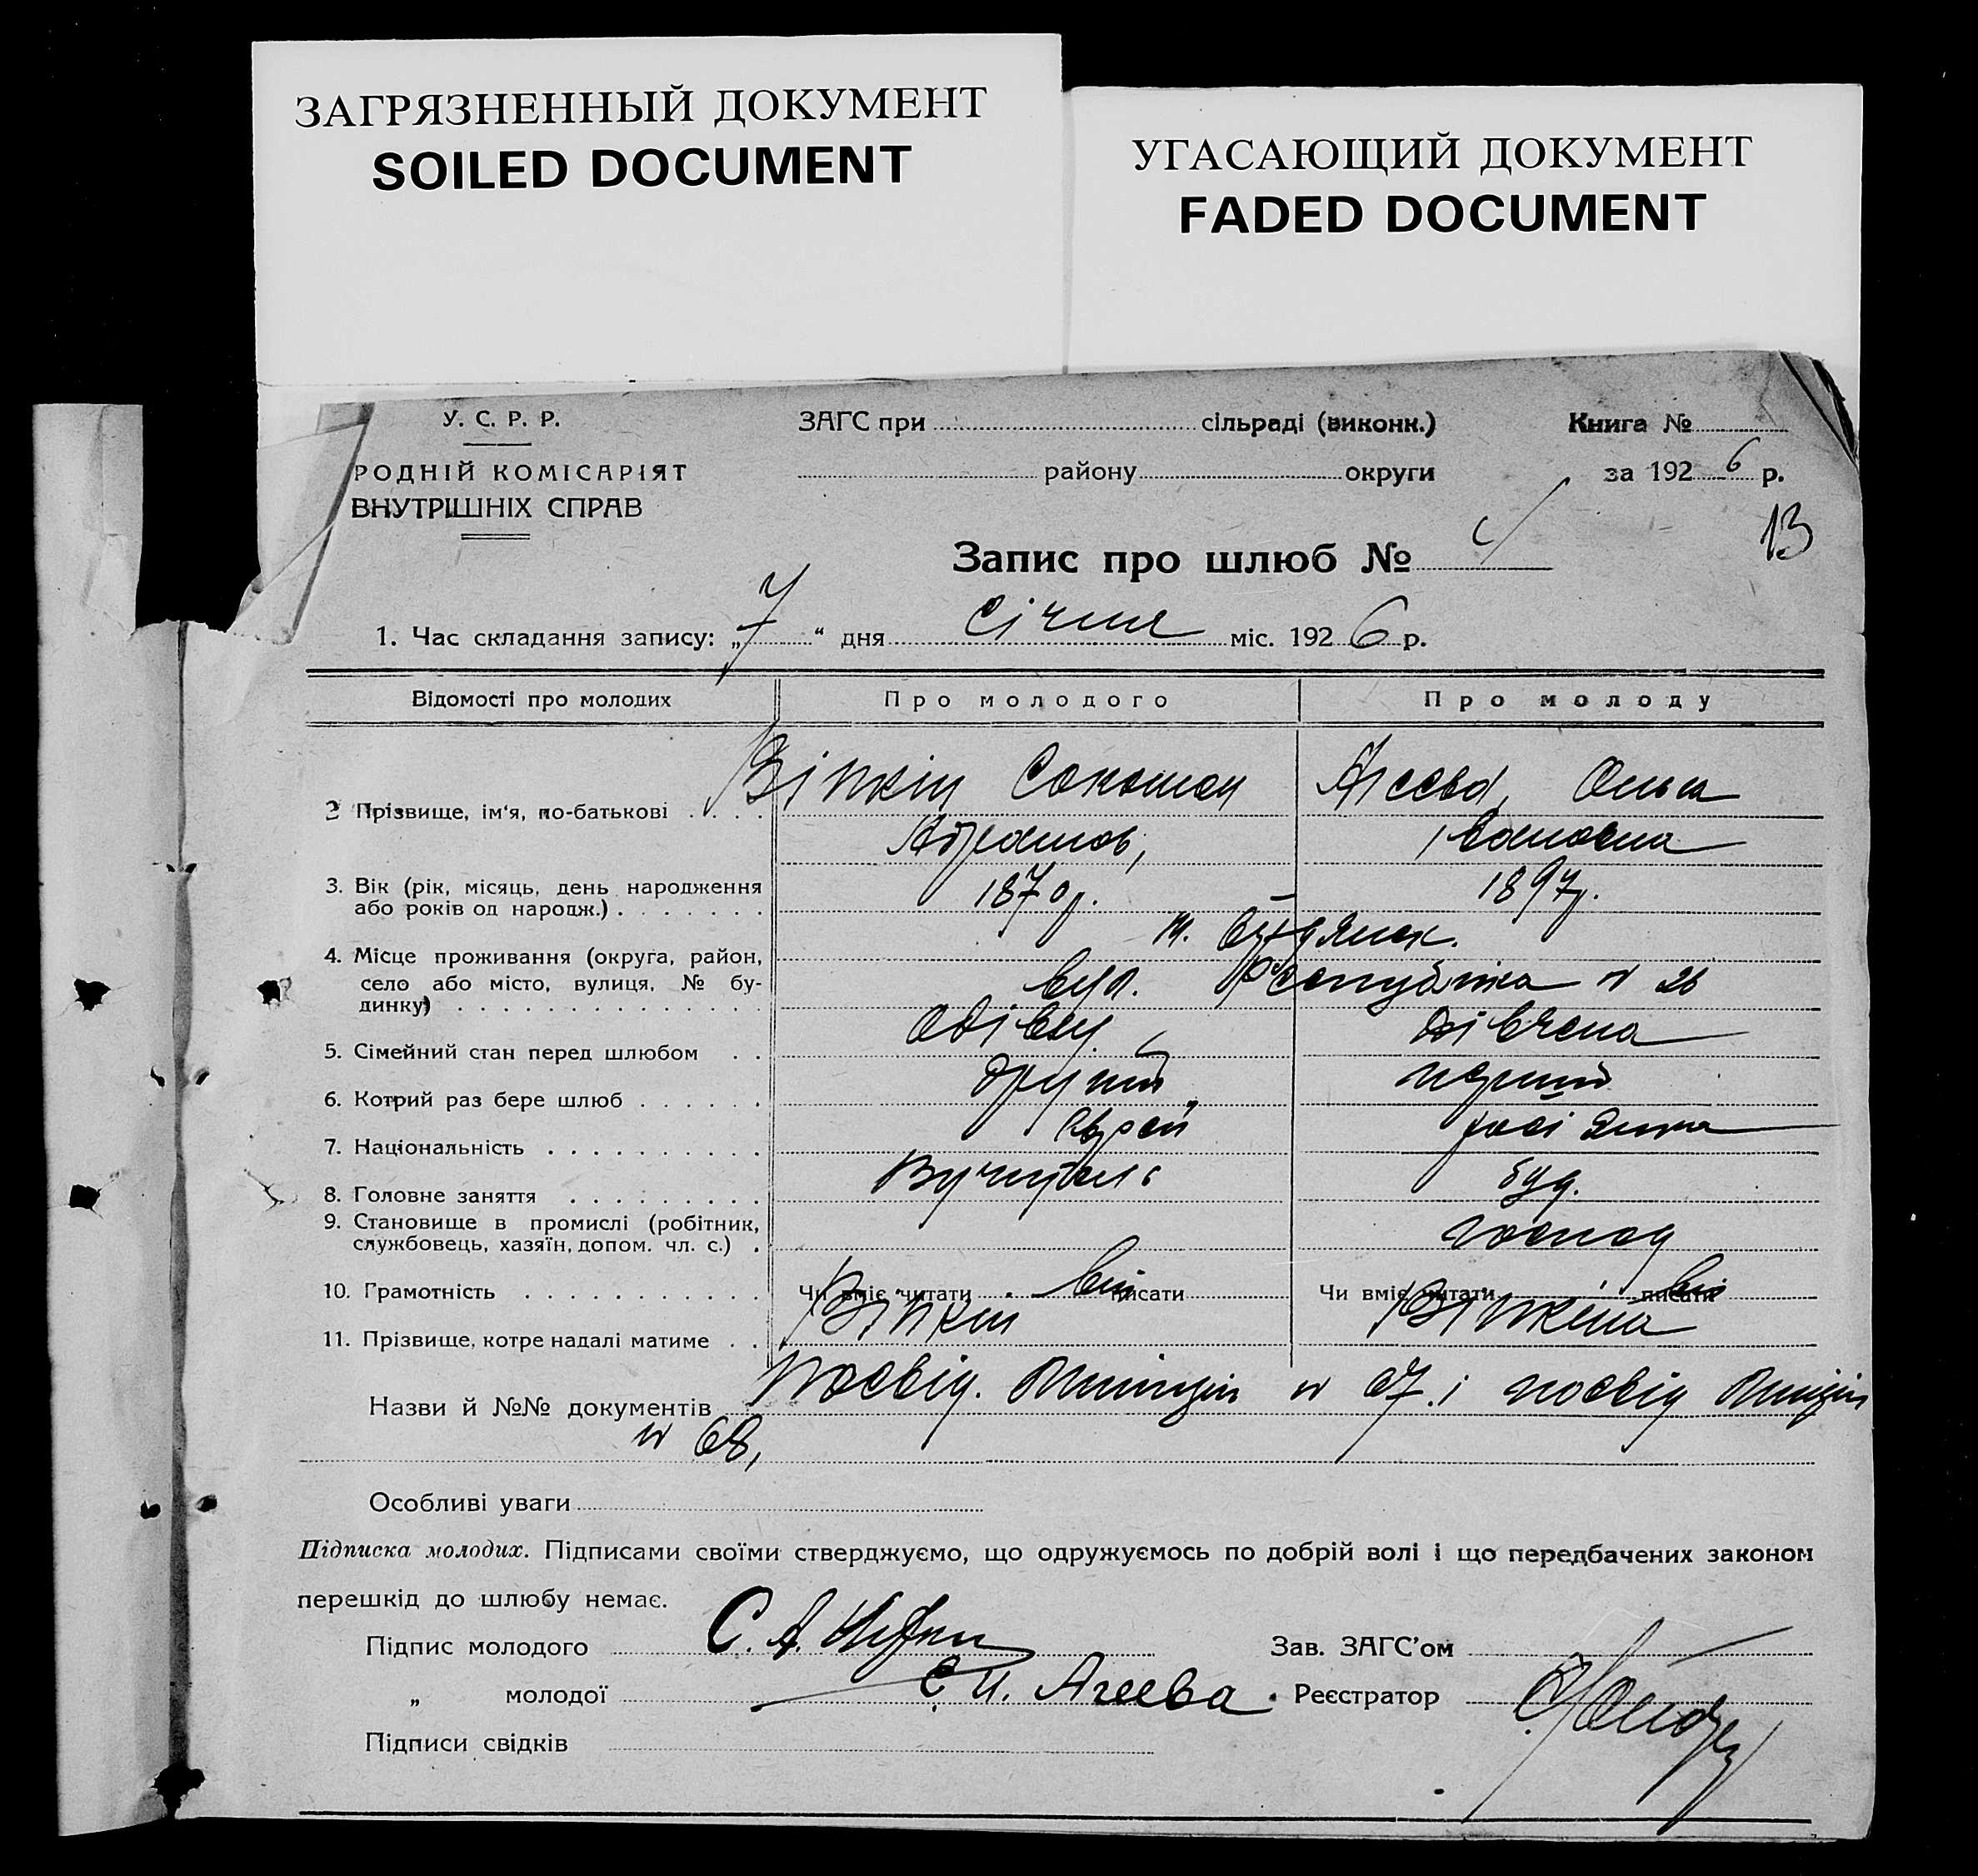 ЗАГРЯЗНЕННЫЙ ДОКУМЕНТ
SOILED DOCUMENT
УГАСАЮЩИЙ ДОКУМЕНТ
FADED DOCUMENT
У. С. Р. Р.
РОДНІЙ КОМІСАРІЯТ
ВНУТРІШНІХ СПРАВ
ЗАГС при сільраді (виконк.)
району округи
Книга №
за 1926 р.
13
Запис про шлюб №
1. Час складання запису: „7“ дня Січня міс. 1926 р.
Відомості про молодих Про молодого Про молоду
2 Прізвище, ім'я, по-батькові Соломон Агеева, Ольга
Абрамов, Івановна
3. Вік (рік, місяць, день народження або років од народж.) 1870р. 1897р.
4. Місце проживання (округа, район, село або місто, вулиця, № будинку) м.
вул. Республіка № 26
5. Сімейний стан перед шлюбом вдівець дівчена
6. Котрий раз бере шлюб другий перший
7. Національність Єврей росіянка
8. Головне заняття Вучитель
9. Становище в промислі (робітник, службовець, хазяїн, допом. чл. с.) господ
10. Грамотність Чи вміє читати писати Чи вміє читати писати
11. Прізвище, котре надалі матиме
Назви й №№ документів посвід. міліції № 67 і посвід міліції
№ 68,
Особливі уваги
Підписка молодих. Підписами своїми стверджуємо, що одружуємось по добрій волі і що передбачених законом
перешкід до шлюбу немає.
Підпис молодого С. А.
„ молодої Агеева
Підписи свідків
Зав. ЗАГС'ом
Реєстратор